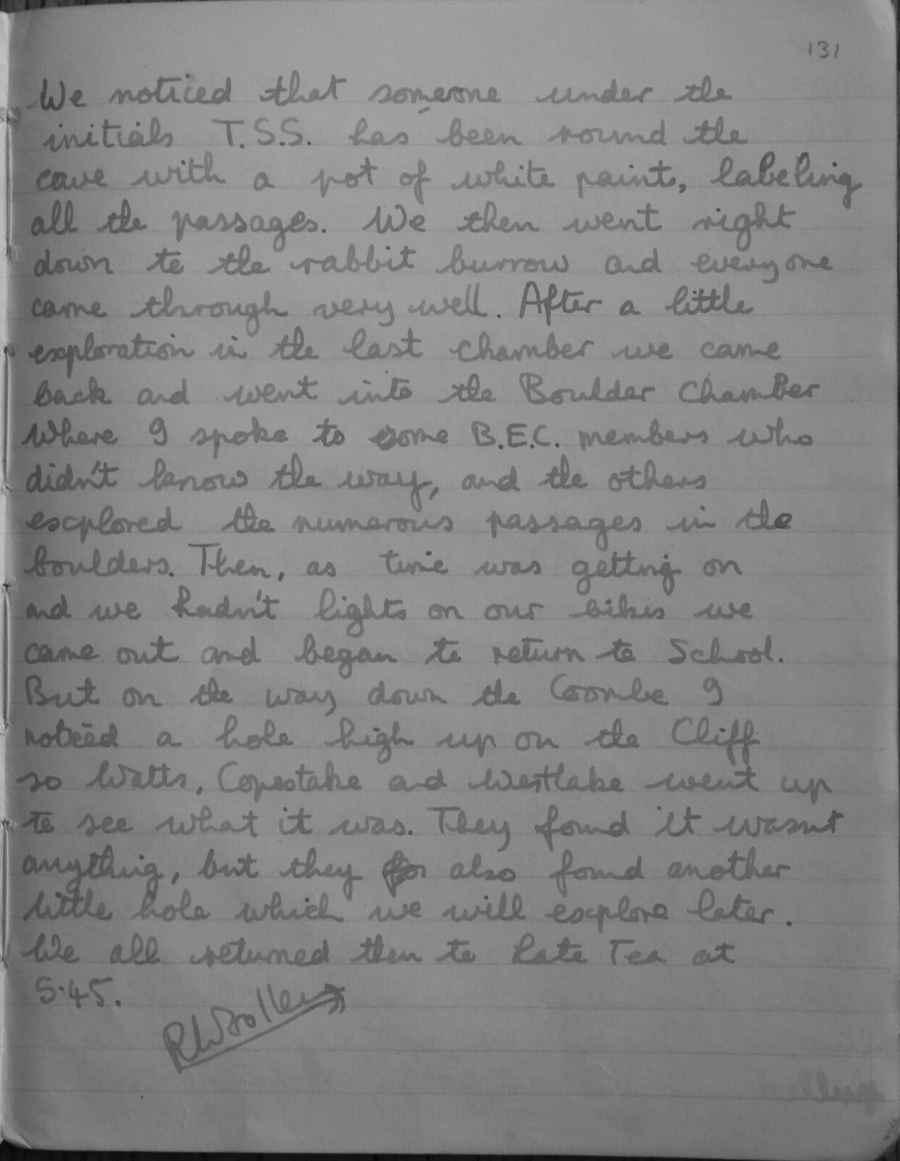 131
We noticed that someone under the
initials T.S.S. has been round the
cave with a pot of white paint, labeling
all the passages. We then went right
down to the rabbit burrow and everyone
came through very well. After a little
exploration in the last chamber we came
back and went into the Boulder Chamber
Where I spoke to some B.E.C. members who
didn't know the way, and the others
explored the numerous passages in the
boulders. Then, as time was getting on
and we hadn't lights on our bikes we
came out and began to return to School.
But on the way down the Coombe I
noticed a hole high up on the Cliff
so Watts, Copestake and Westlake went up
to see what it was. They found it wasn't
anything, but they also found another
little hole which we will explore later.
We all returned then to Late Tea at
5.45.